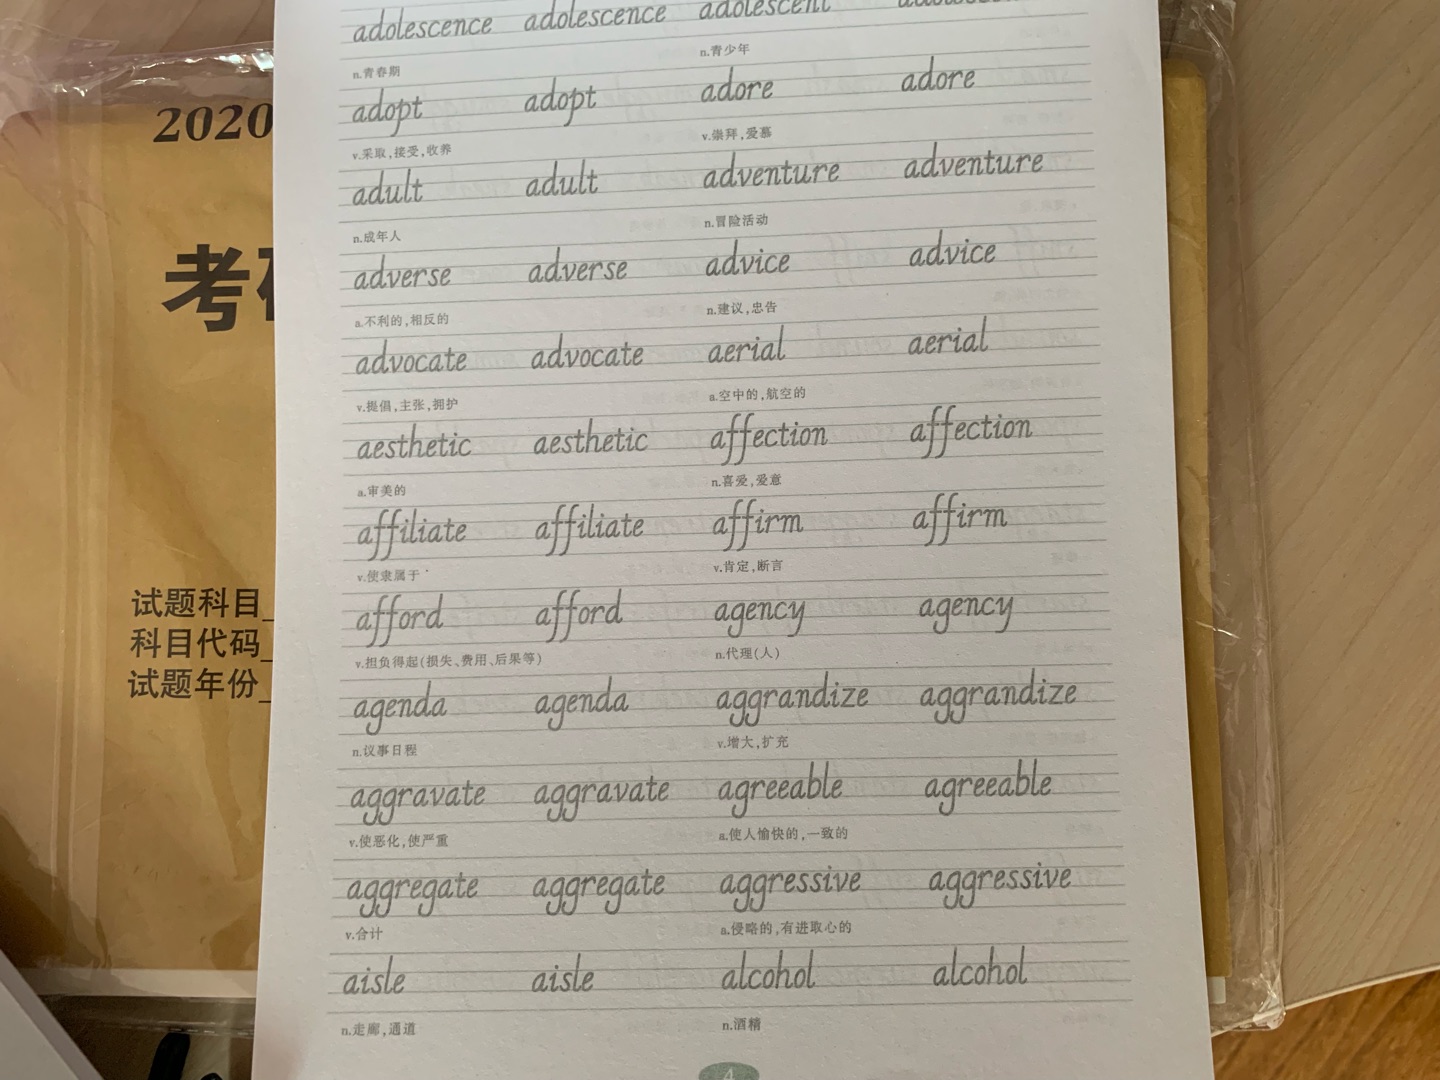 adolescence adolescence adolescent
n.青春期 n.青少年
adopt adopt adore adore
v.采取,接受,收养 v.崇拜,爱慕
adult adult adventure adventure
n.成年人 n.冒险活动
adverse adverse advice advice
a.不利的,相反的 n.建议,忠告
advocate advocate aerial aerial
v.提倡,主张,拥护 a.空中的,航空的
aesthetic aesthetic affection affection
a.审美的 n.喜爱,爱意
affiliate affiliate affirm affirm
v.使隶属于 v.肯定,断言
afford afford agency agency
v.担负得起(损失、费用、后果等) n.代理(人)
agenda agenda aggrandize aggrandize
n.议事日程 v.增大,扩充
aggravate aggravate agreeable agreeable
v.使恶化,使严重 a.使人愉快的,一致的
aggregate aggregate aggressive aggressive
v.合计 a.侵略的,有进取心的
aisle aisle alcohol alcohol
n.走廊,通道 n.酒精
4
2020
考
试题科目
科目代码
试题年份